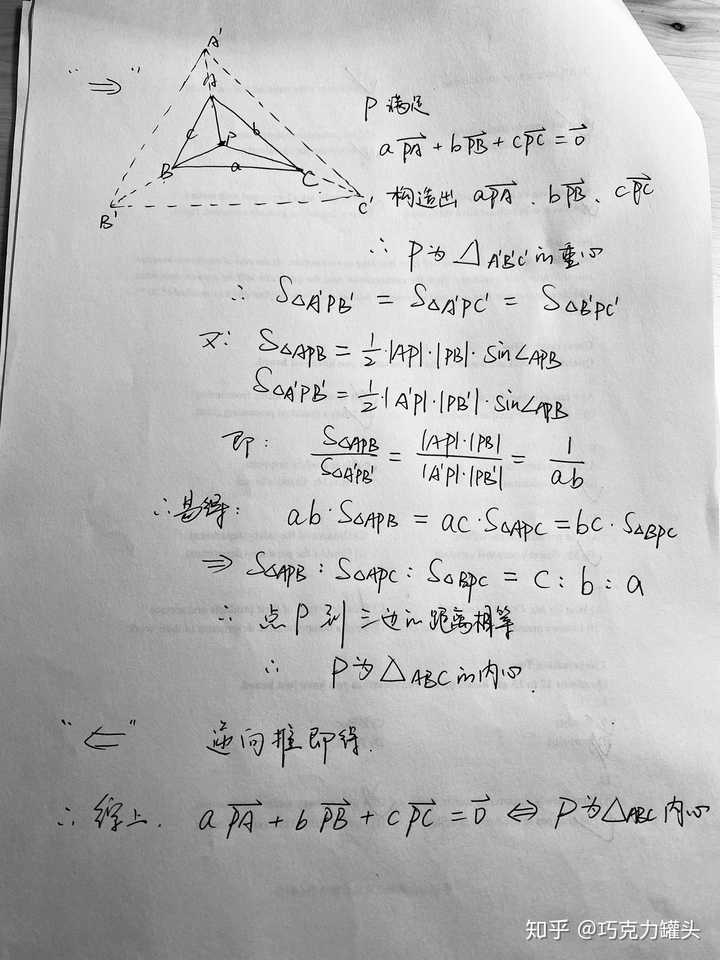 "⇒"
A'
A
c
b
P
a
B
C
B'
C'
P 满足
a$\overrightarrow{PA}$ + b$\overrightarrow{PB}$ + c$\overrightarrow{PC}$ = $\vec{0}$
构造出 a$\overrightarrow{PA}$、b$\overrightarrow{PB}$、c$\overrightarrow{PC}$
∴ P为△A'B'C'的重心
∴ S△A'PB' = S△A'PC' = S△B'PC'
又: S△APB = 1/2·|AP|·|PB|·sin∠APB
S△A'PB' = 1/2·|A'P|·|PB'|·sin∠APB
即: S△APB/S△A'PB' = |AP|·|PB|/|A'P|·|PB'| = 1/ab
∴易得: ab·S△APB = ac·S△APC = bc·S△BPC
⇒ S△APB : S△APC : S△BPC = c : b : a
∴ 点P到三边的距离相等
∴ P为△ABC的内心.
"⇐" 逆向推即得.
∴ 综上. a$\overrightarrow{PA}$ + b$\overrightarrow{PB}$ + c$\overrightarrow{PC}$ = $\vec{0}$ ⇔ P为△ABC内心
知乎 @巧克力罐头